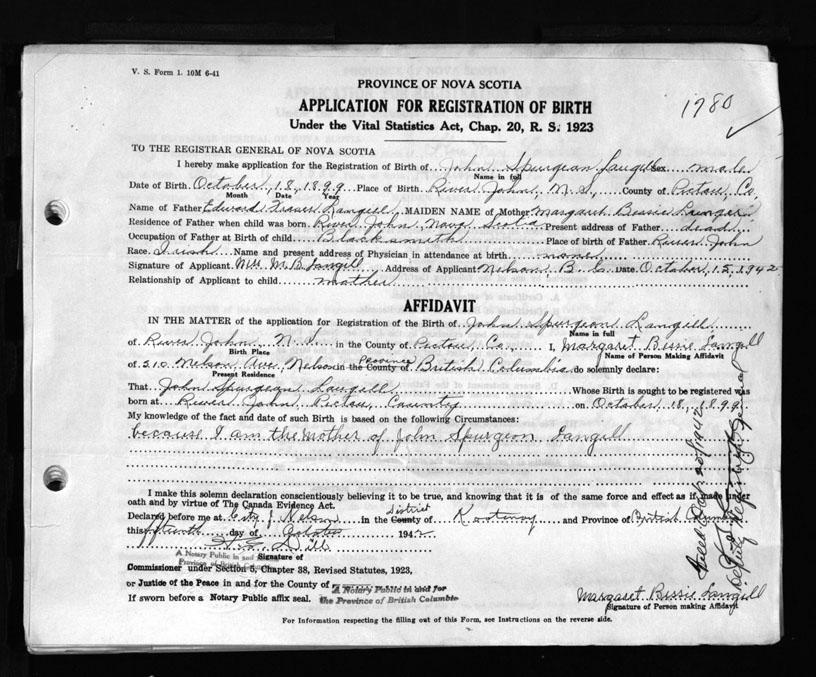 V. S. Form 1. 10M 6-41
PROVINCE OF NOVA SCOTIA
1780
APPLICATION FOR REGISTRATION OF BIRTH
Under the Vital Statistics Act, Chap. 20, R. S. 1923
TO THE REGISTRAR GENERAL OF NOVA SCOTIA
I hereby make application for the Registration of Birth of John Spurgean Langill Sex male
Name in full
Date of Birth October, 18, 1899 Place of Birth River John, N. S., County of Pictou, Co.
Month Date Year
Name of Father Edward Langill MAIDEN NAME of Mother Margaret Bessie
Residence of Father when child was born River John, Nova Scotia Present address of Father dead
Occupation of Father at Birth of child Blacksmith Place of birth of Father River John
Race. Irish Name and present address of Physician in attendance at birth none
Signature of Applicant Mrs M. B. Langill Address of Applicant Nelson, B. C. Date October, 15, 1942
Relationship of Applicant to child mother
AFFIDAVIT
IN THE MATTER of the application for Registration of the Birth of John Spurgeon Langill
Name in full
of River John, N. S. in the County of Pictou Co. I, Margaret Bessie Langill
Birth Place Name of Person Making Affidavit
of 510 Nelson Ave. Nelson in the Province County of British Columbia do solemnly declare:
Present Residence
That John Spurgean Langill Whose Birth is sought to be registered was
born at River John, Pictou, County on October, 18, 1899
My knowledge of the fact and date of such Birth is based on the following Circumstances:
because I am the mother of John Spurgeon Langill
I make this solemn declaration conscientiously believing it to be true, and knowing that it is of the same force and effect as if made under
oath and by virtue of The Canada Evidence Act.
Declared before me at City of Nelson in the District County of Kootenay and Province of British Columbia
this fifteenth day of October 1942
A Notary Public in and for
Province of British Columbia
Signature of
Commissioner under Section 5, Chapter 38, Revised Statutes, 1923,
or Justice of the Peace in and for the County of
A Notary Public in and for
If sworn before a Notary Public affix seal. the Province of British Columbia
Margaret Bessie Langill
Signature of Person making Affidavit
For Information respecting the filling out of this Form, see Instructions on the reverse side.
Deputy Registrar General